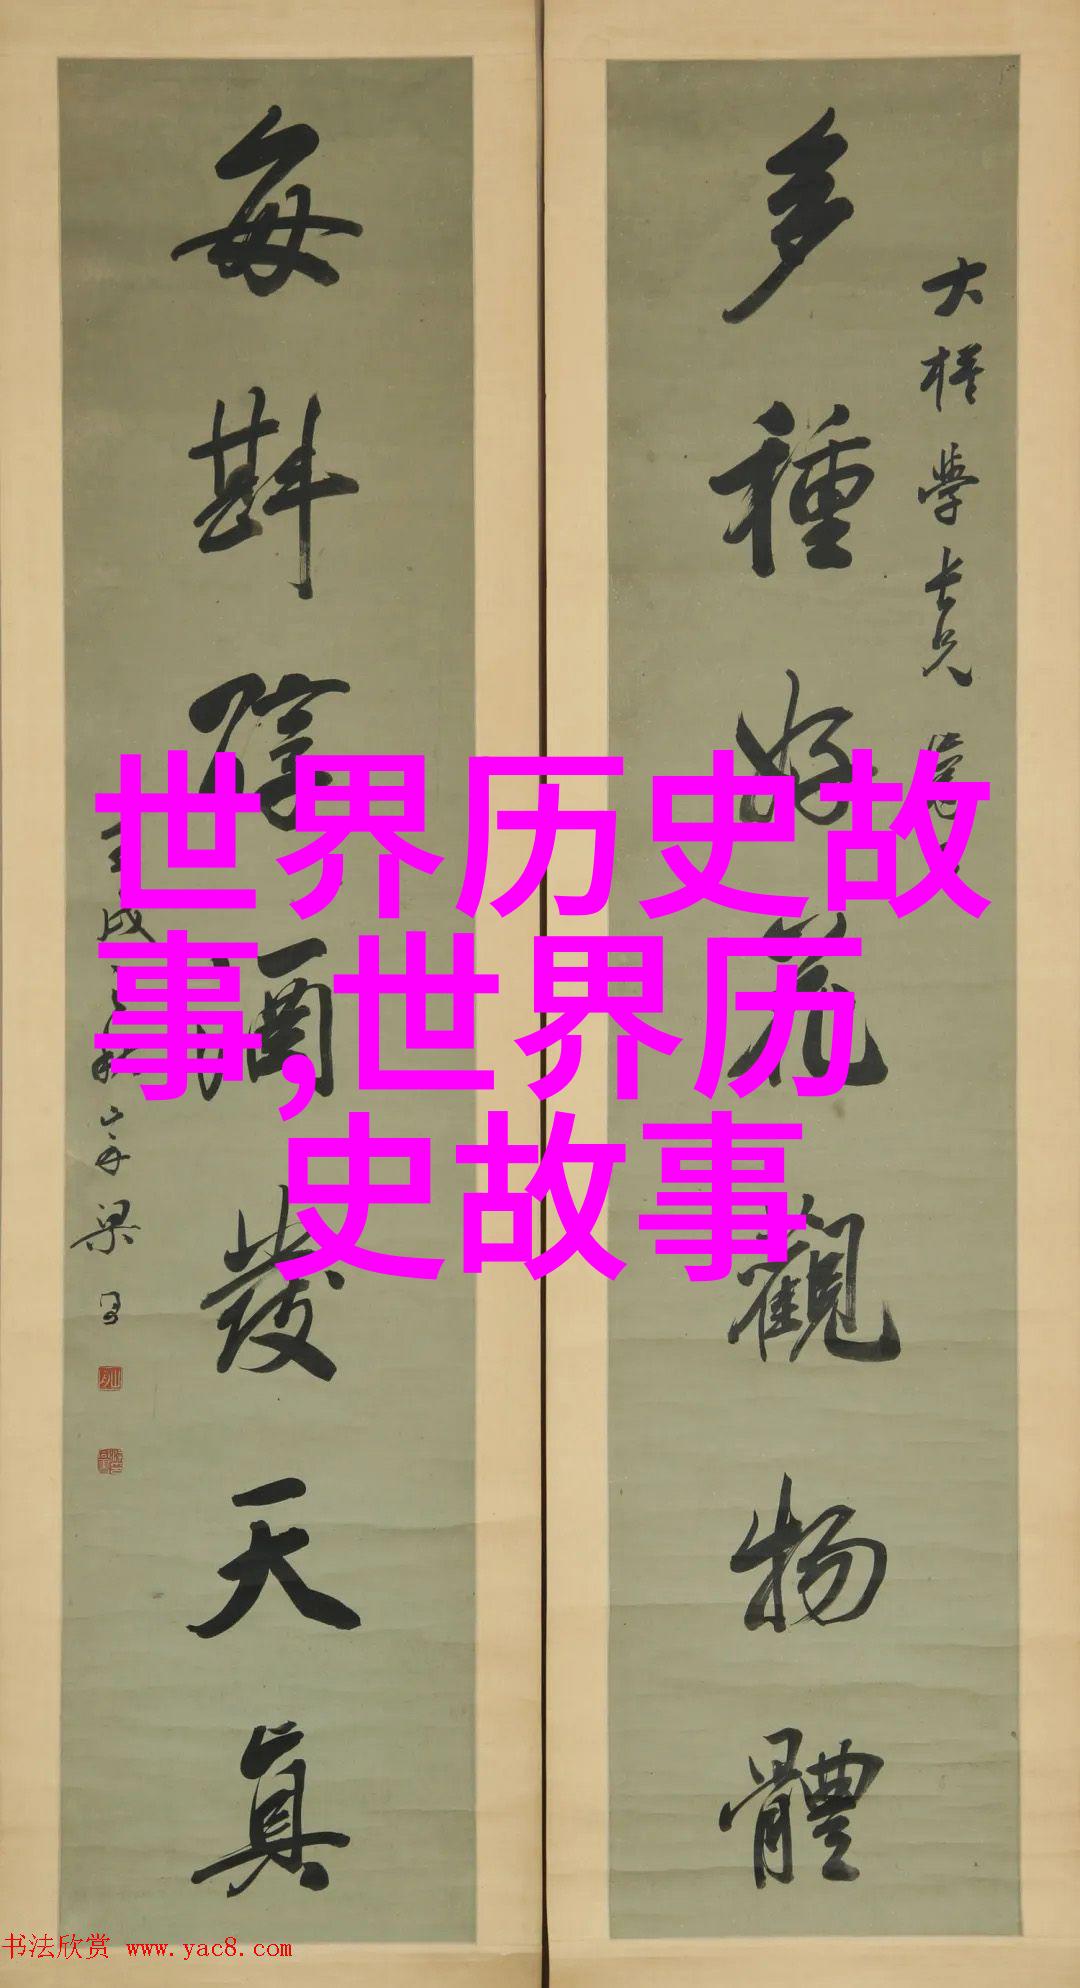 多種好花觀物體
大樑學長兄
每斟醇酒發天真
山舟梁
世界历史故
事,世界历
史故事
书法欣赏 www.yac8.com